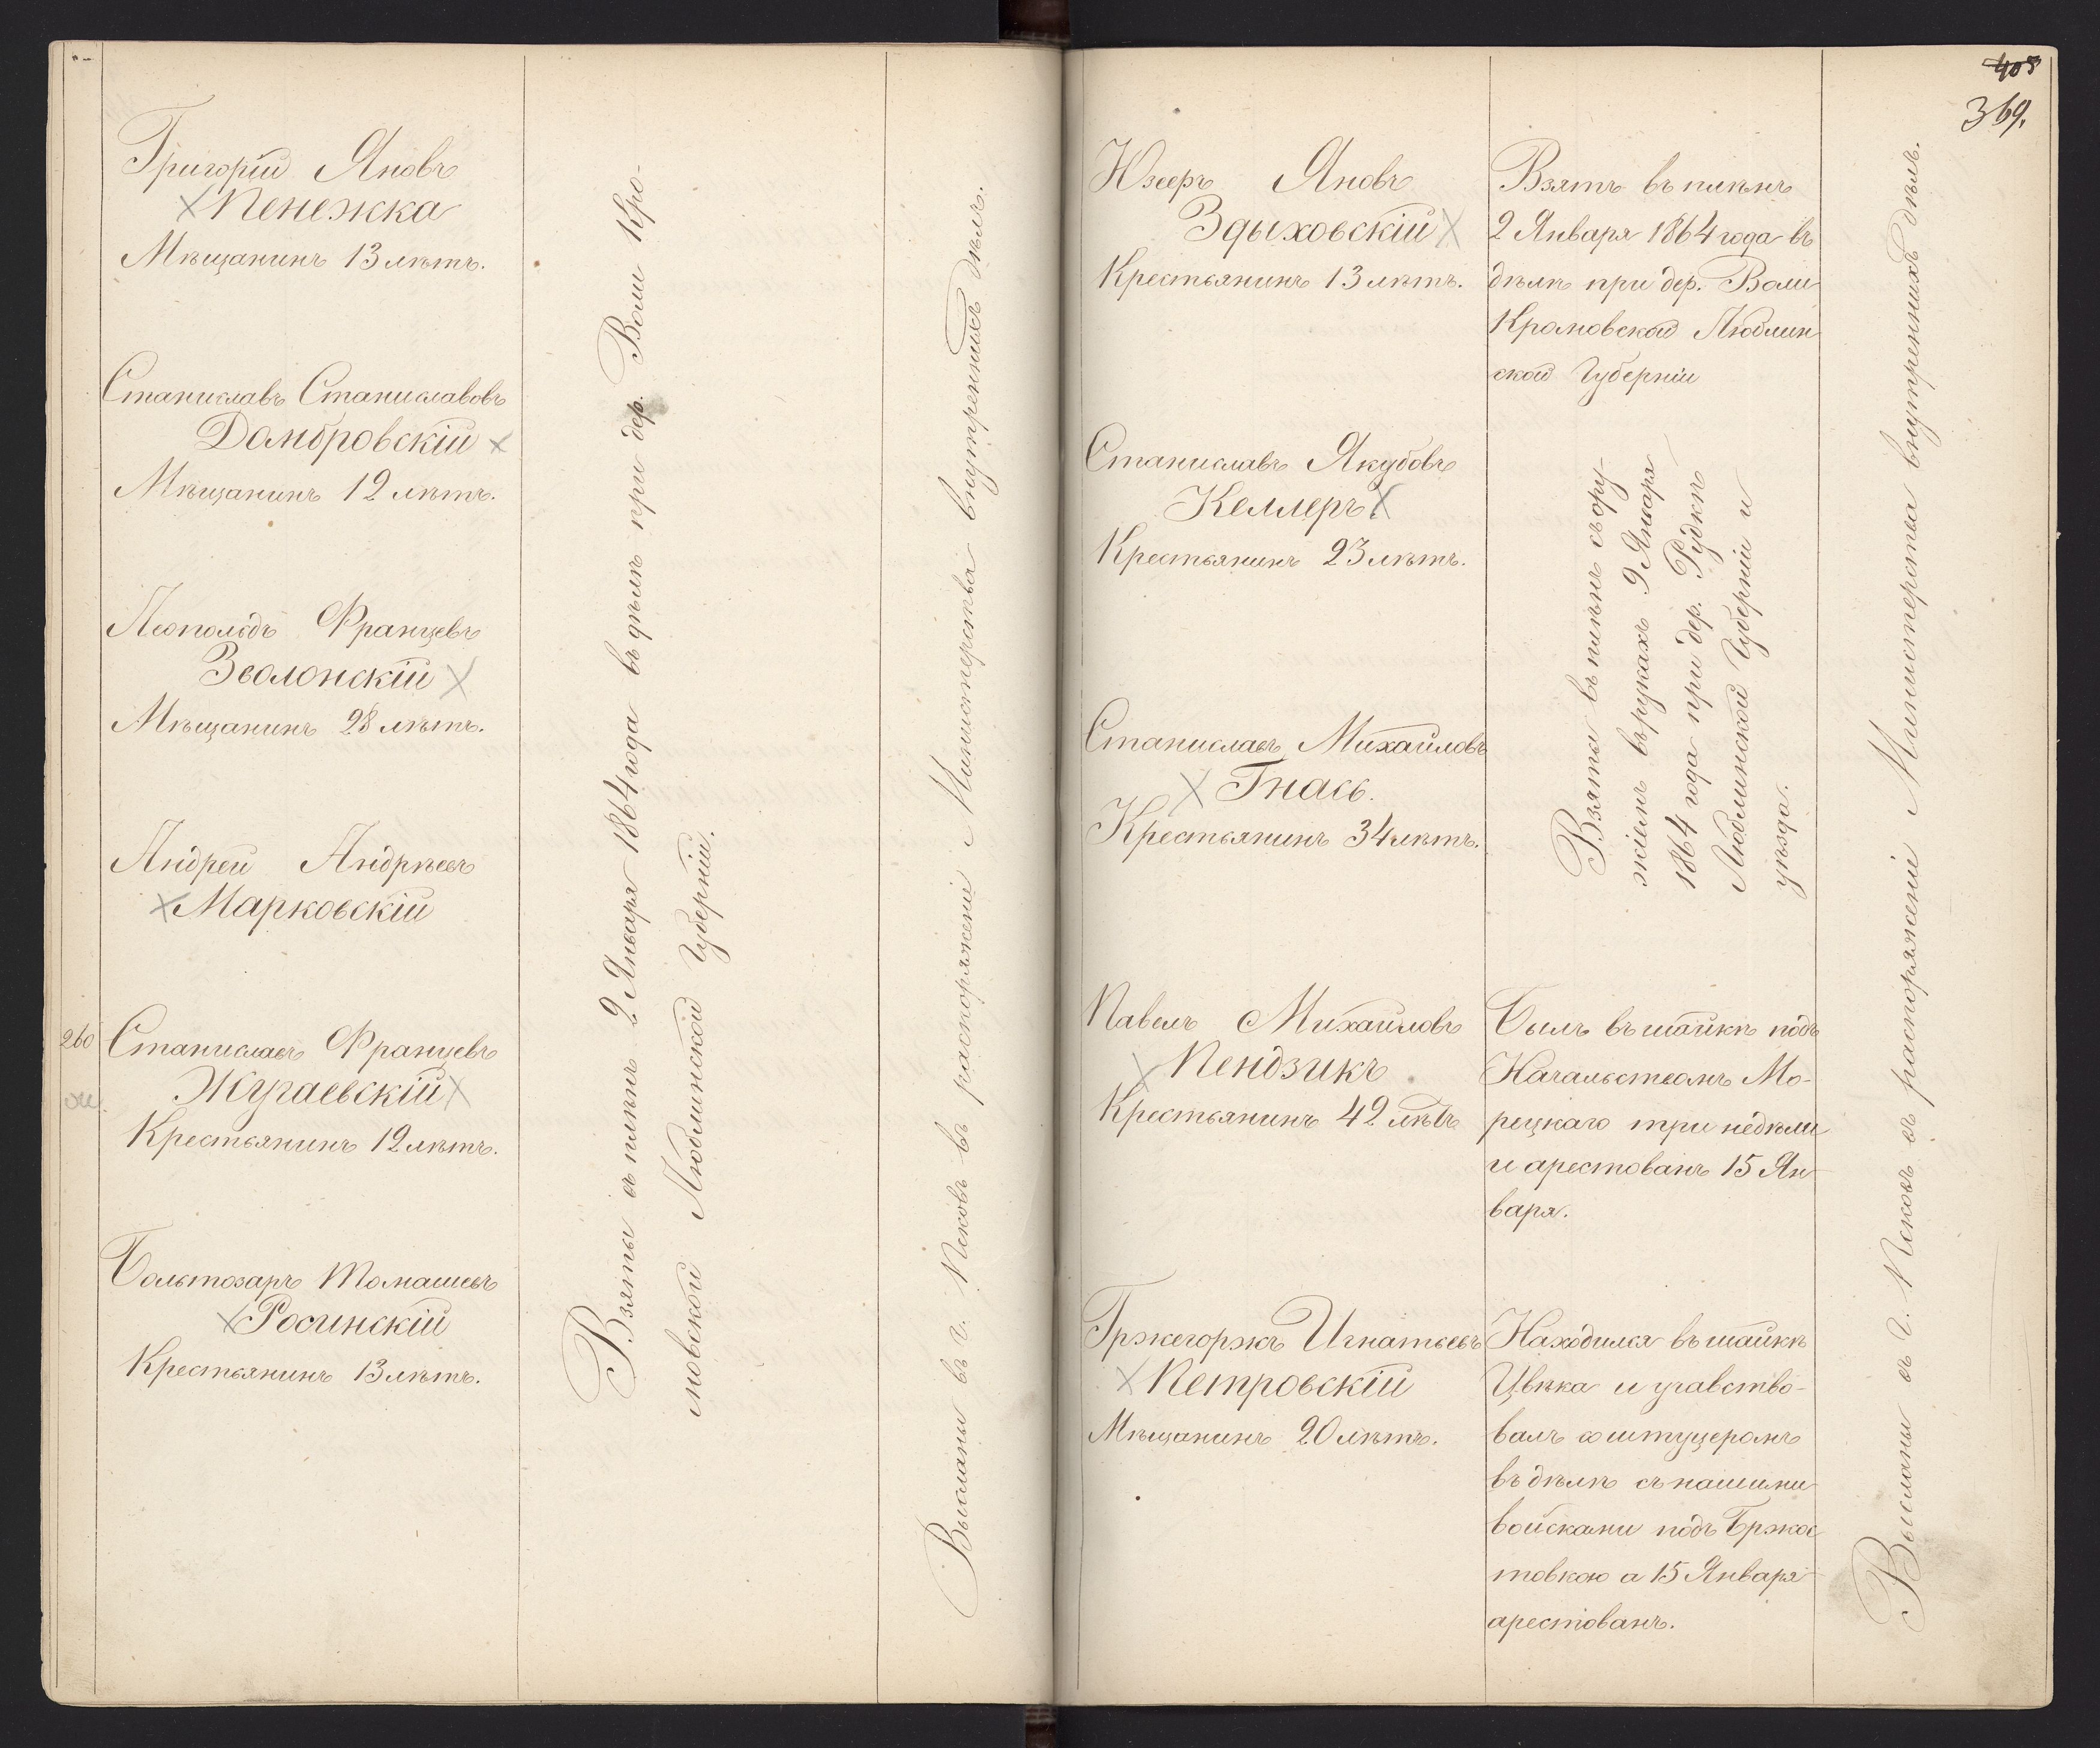 Григорій Яновъ
Пенежка
Мѣщанинъ 13 лѣтъ.
Станиславъ Станиславовъ
Домбровскій
Мѣщанинъ 12 лѣтъ.
Леопольдъ Францевъ
Зволонскій
Мѣщанинъ 28 лѣтъ.
Андрей Андрѣевъ
Марковскій
260
Станиславъ Францевъ
Жугаевскій
Крестьянинъ 12 лѣтъ.
Бальтозаръ Томашевъ
Росинскій
Крестьянинъ 13 лѣтъ.
Взяты въ плѣнъ 2 Января 1864 года въ дѣлѣ при дер. Воли Кро-
мовской Люблинской Губерніи.
Высланы въ г. Псковъ въ распоряженіе Министерства внутреннихъ дѣлъ.
405
369.
Юзефъ Яновъ
Здыховскій
Крестьянинъ 13 лѣтъ.
Взятъ въ плѣнъ
2 Января 1864 года въ
дѣлѣ при дер. Воли
Кромовской Люблин
ской Губерніи
Станиславъ Якубовъ
Келлеръ
Крестьянинъ 23 лѣтъ.
Станиславъ Михайловъ
Гнась.
Крестьянинъ 34 лѣтъ.
Взяты въ плѣнъ съ ору-
жіемъ въ рукахъ 9 Января
1864 года при дер. Рудкѣ
Люблинской Губерніи и
уѣзда.
Павелъ Михайловъ
Пендзикъ
Крестьянинъ 42 лѣтъ
Былъ въ шайкѣ подъ
Начальствомъ Мо-
рецкаго три недѣли
и арестованъ 15 Ян
варя.
Гржегоржъ Игнатьевъ
Петровскій
Мѣщанинъ 20 лѣтъ.
Находился въ шайкѣ
Цвѣка и учавство-
валъ со штуцеромъ
въ дѣлѣ съ нашими
войсками подъ Бржос
товкою а 15 Января
арестованъ.
Высланы въ г. Псковъ въ распоряженіе Министерства внутреннихъ дѣлъ.